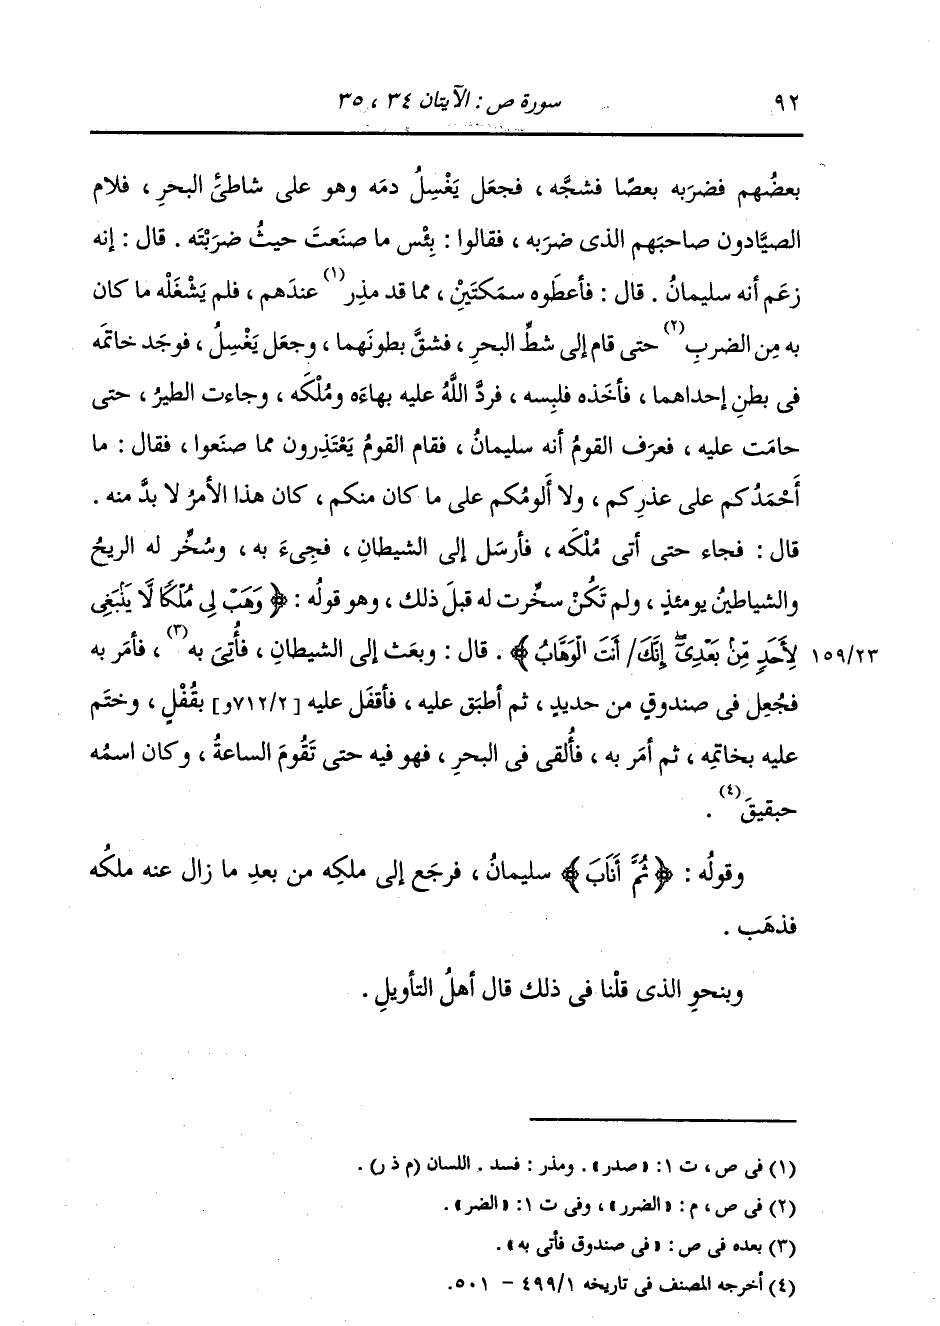 ٩٢ سورة ص : الآيتان ٣٤ ، ٣٥
بعضُهم فضرَبه بعصًا فشجَّه ، فجعَل يَغْسِلُ دمَه وهو على شاطئِ البحرِ ، فلام
الصيَّادون صاحبَهم الذى ضرَبه ، فقالوا : بِئْس ما صنَعتَ حيثُ ضرَبْتَه . قال : إنه
زعَم أنه سليمانُ . قال : فأعطَوه سمَكتَيْنِ ، مما قد مذِر(١) عندَهم ، فلم يَشْغَلْه ما كان
به مِن الضربِ(٢) حتى قام إلى شطِّ البحرِ ، فشقَّ بطونَهما ، وجعَل يَغْسِلُ ، فوجَد خاتمَه
فى بطنِ إحداهما ، فأخَذه فلبِسه ، فردَّ اللَّهُ عليه بهاءَه ومُلْكَه ، وجاءت الطيرُ ، حتى
حامَت عليه ، فعرَف القومُ أنه سليمانُ ، فقام القومُ يَعْتَذِرون مما صنَعوا ، فقال : ما
أَحْمَدُكم على عذرِكم ، ولا أَلومُكم على ما كان منكم ، كان هذا الأمرُ لا بدَّ منه .
قال : فجاء حتى أتى مُلْكَه ، فأرسَل إلى الشيطانِ ، فجِىءَ به ، وسُخِّر له الريحُ
والشياطينُ يومئذٍ ، ولم تَكُنْ سخِّرت له قبلَ ذلك ، وهو قولُه : ﴿ وَهَبْ لِى مُلْكًا لَّا يَنۢبَغِى
لِأَحَدٍ مِّنۢ بَعْدِىٓۖ إِنَّكَ / أَنتَ الْوَهَّابُ ﴾ . قال : وبعَث إلى الشيطانِ ، فأُتِىَ به(٣) ، فأمَر به ١٥٩/٢٣
فجُعِل فى صندوقٍ من حديدٍ ، ثم أطبَق عليه ، فأقفَل عليه [٧١٢/٢و] بقُفْلٍ ، وختَم
عليه بخاتمِه ، ثم أمَر به ، فأُلقى فى البحرِ ، فهو فيه حتى تَقُومَ الساعةُ ، وكان اسمُه
حبقيقَ(٤) .
وقولُه : ﴿ ثُمَّ أَنَابَ ﴾ سليمانُ ، فرجَع إلى ملكِه من بعدِ ما زال عنه ملكُه
فذهَب .
وبنحوِ الذى قلْنا فى ذلك قال أهلُ التأويلِ .
(١) فى ص ، ت ١: « صدر » . ومذر : فسد . اللسان (م ذ ر) .
(٢) فى ص ، م : « الضرر » ، وفى ت ١: « الضر » .
(٣) بعده فى ص : « فى صندوق فأتى به » .
(٤) أخرجه المصنف فى تاريخه ٤٩٩/١ - ٥٠١.